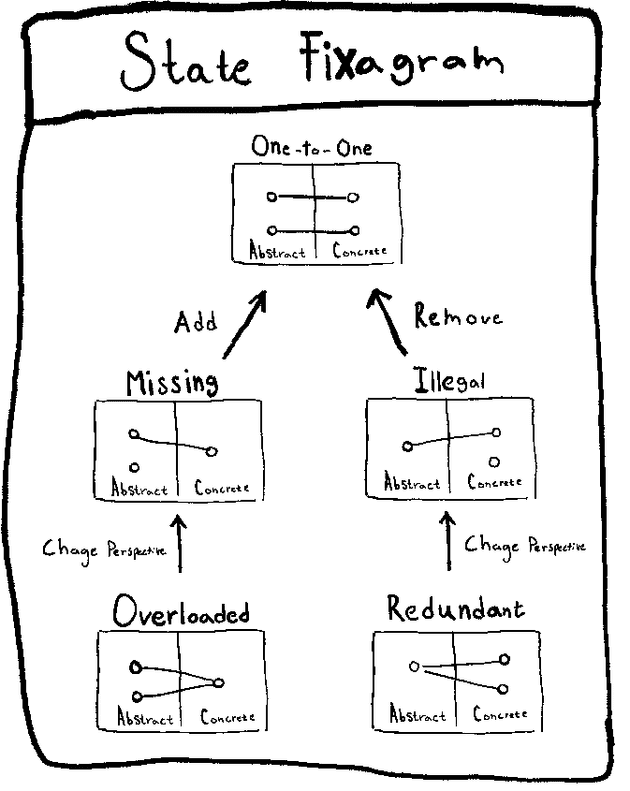 State Fixagram
One-to-One
Abstract Concrete
Add
Remove
Missing
Illegal
Abstract Concrete
Abstract Concrete
Chage Perspective
Chage Perspective
Overloaded
Redundant
Abstract Concrete
Abstract Concrete